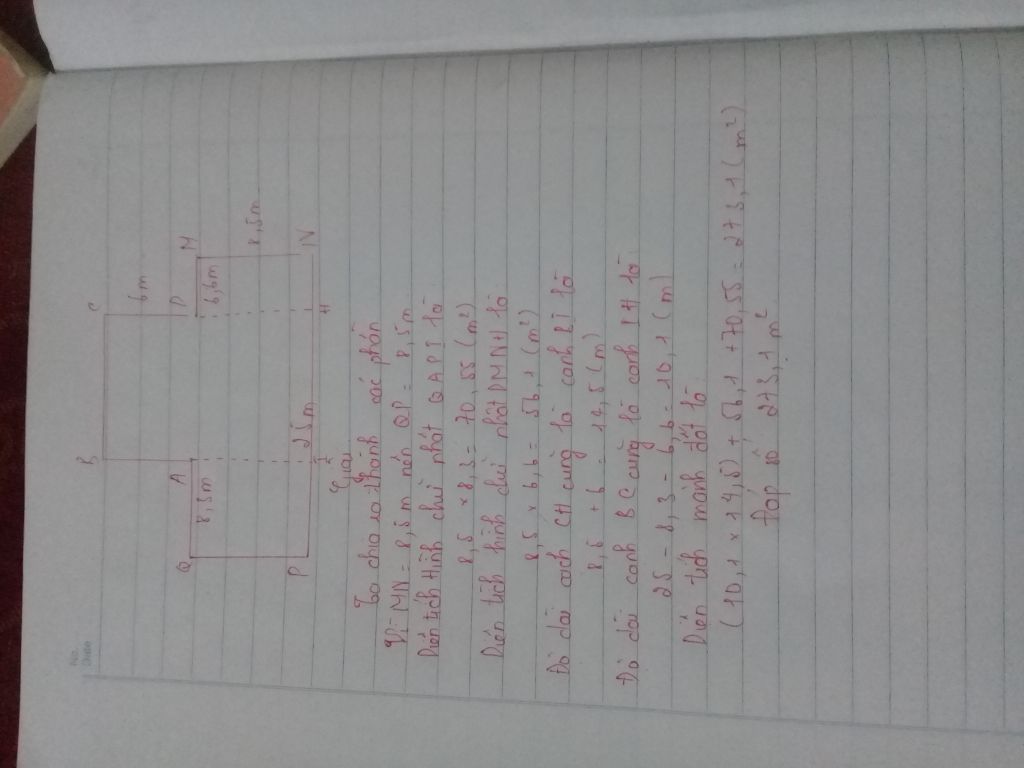 No.
Date
B
C
6m
Q
A
D
M
8,3m
6,6m
8,5m
25m
P
I
H
N
Giải
Ta chia ra thành các phần
Vì MN = 8,5m nên QP = 8,5m
Diện tích Hình chữ nhật QAPI là
8,5 x 8,3 = 70,55 (m²)
Diện tích hình chữ nhật DMNH là:
8,5 x 6,6 = 56,1 (m²)
Độ dài cạch CH cũng là cạnh BI là
8,5 + 6 = 14,5 (m)
Độ dài cạnh BC cũng là cạnh IH là
25 - 8,3 - 6,6 = 10,1 (m)
Diện tích mảnh đất là
(10,1 x 14,5) + 56,1 + 70,55 = 273,1 (m²)
Đáp số 273,1 m²